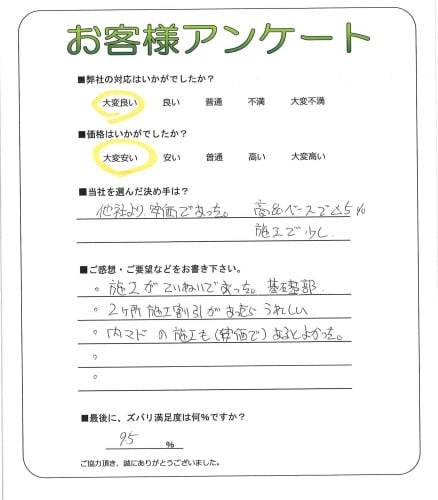 お客様アンケート
■弊社の対応はいかがでしたか?
大変良い 良い 普通 不満 大変不満
■価格はいかがでしたか?
大変安い 安い 普通 高い 大変高い
■当社を選んだ決め手は?
他社より、安価であった。 商品ベースで△5%
施工で少し
■ご感想・ご要望などをお書き下さい。
。施工がていねいであった。基礎部
。2ヶ所施工割引があったらうれしい
。内マドの施工も(安価で)あるとよかった。
。
。
■最後に、ズバリ満足度は何%ですか?
95 %
ご協力頂き、誠にありがとうございました。